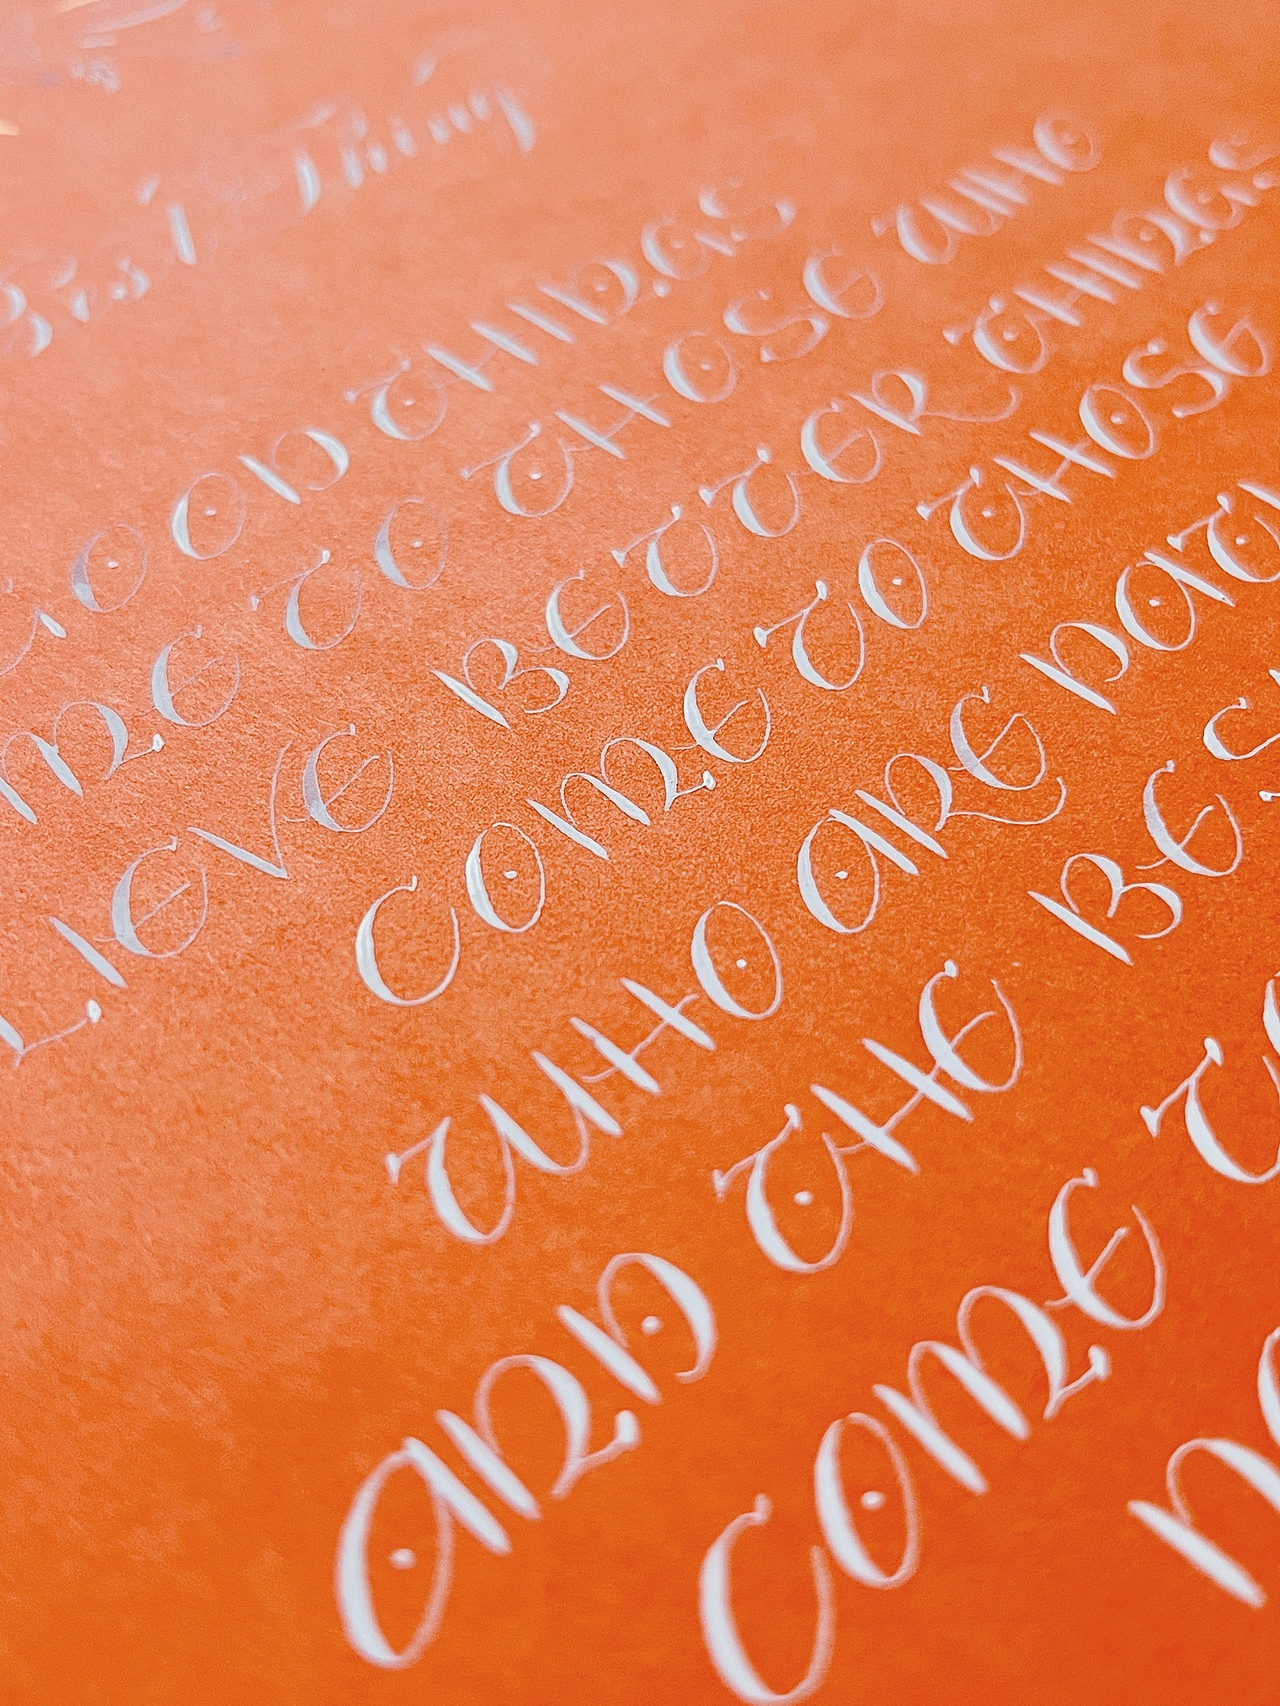 Best Thing
GOOD THINGS
ME TO THOSE WHO
LIEVE BETTER THINGS
COME TO THOSE
WHO ARE PATI
AND THE BES
COME T